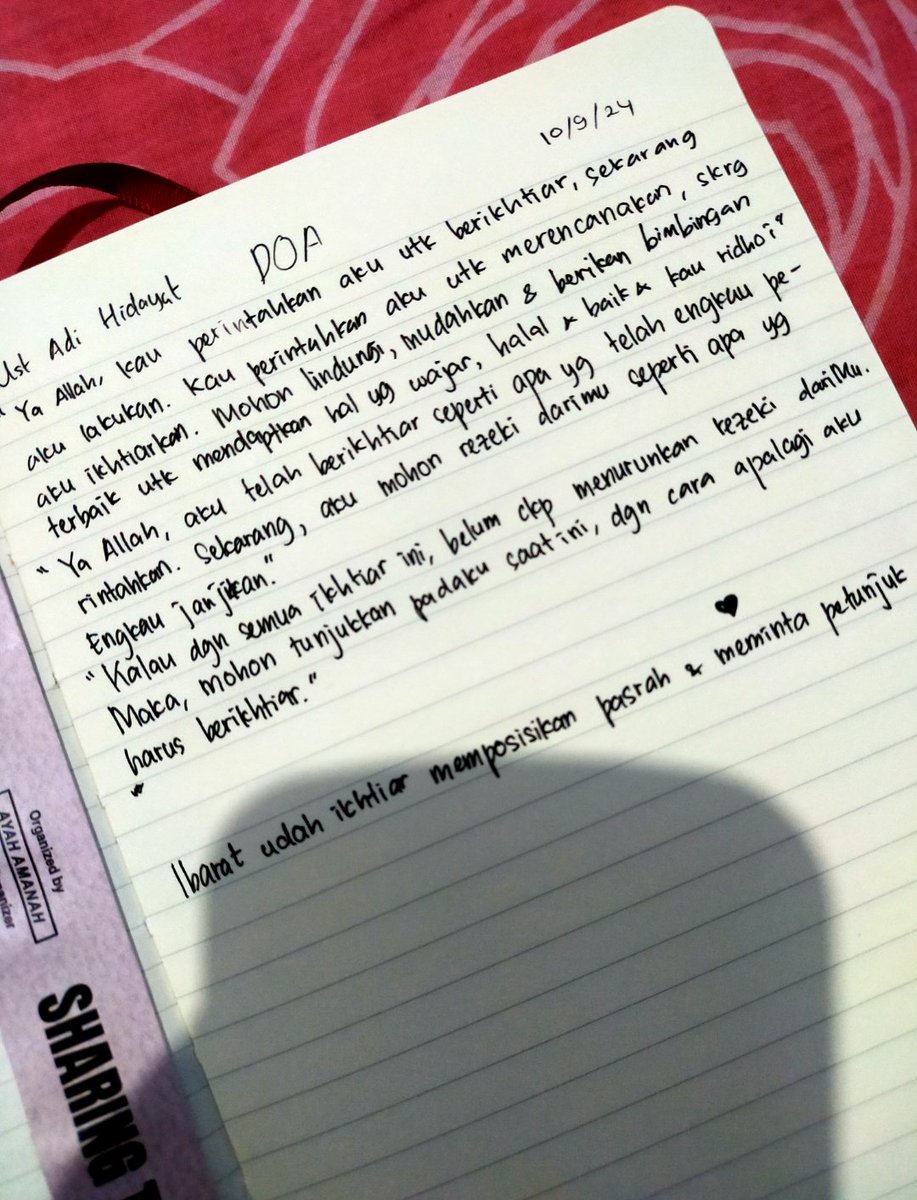 10/9/24
DOA
Ust Adi Hidayat
" Ya Allah, kau perintahkan aku utk berikhtiar, sekarang
aku lakukan. Kau perintahkan aku utk merencanakan, skrg
aku ikhtiarkan. Mohon lindungi, mudahkan & berikan bimbingan
terbaik utk mendaptkan hal yg wajar, halal & baik & kau ridhoi"
" Ya Allah, aku telah berikhtiar seperti apa yg telah engkau pe-
rintahkan. Sekarang, aku mohon rezeki darimu seperti apa yg
Engkau janjikan."
" Kalau dgn semua ikhtiar ini, belum ckp menurunkan rezeki dariMu.
Maka, mohon tunjukkan padaku saat ini, dgn cara apalagi aku
harus berikhtiar."
"
Ibarat udah ikhtiar memposisikan pasrah & meminta petunjuk
Organized by
AYAH AMANAH
anizer
SHARING T